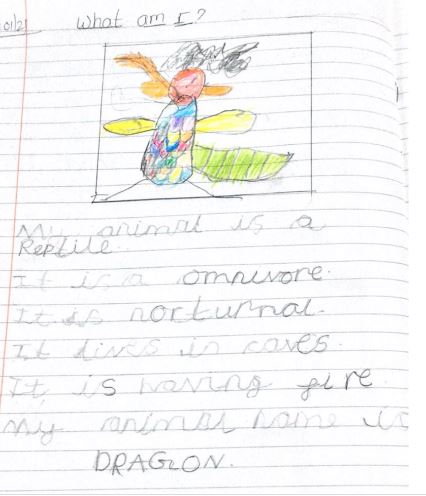 01/21
What am I?
My animal is a
Reptile.
It is a omnivore.
It is nocturnal.
It lives in caves.
It is having fire
My animal name is
DRAGON.